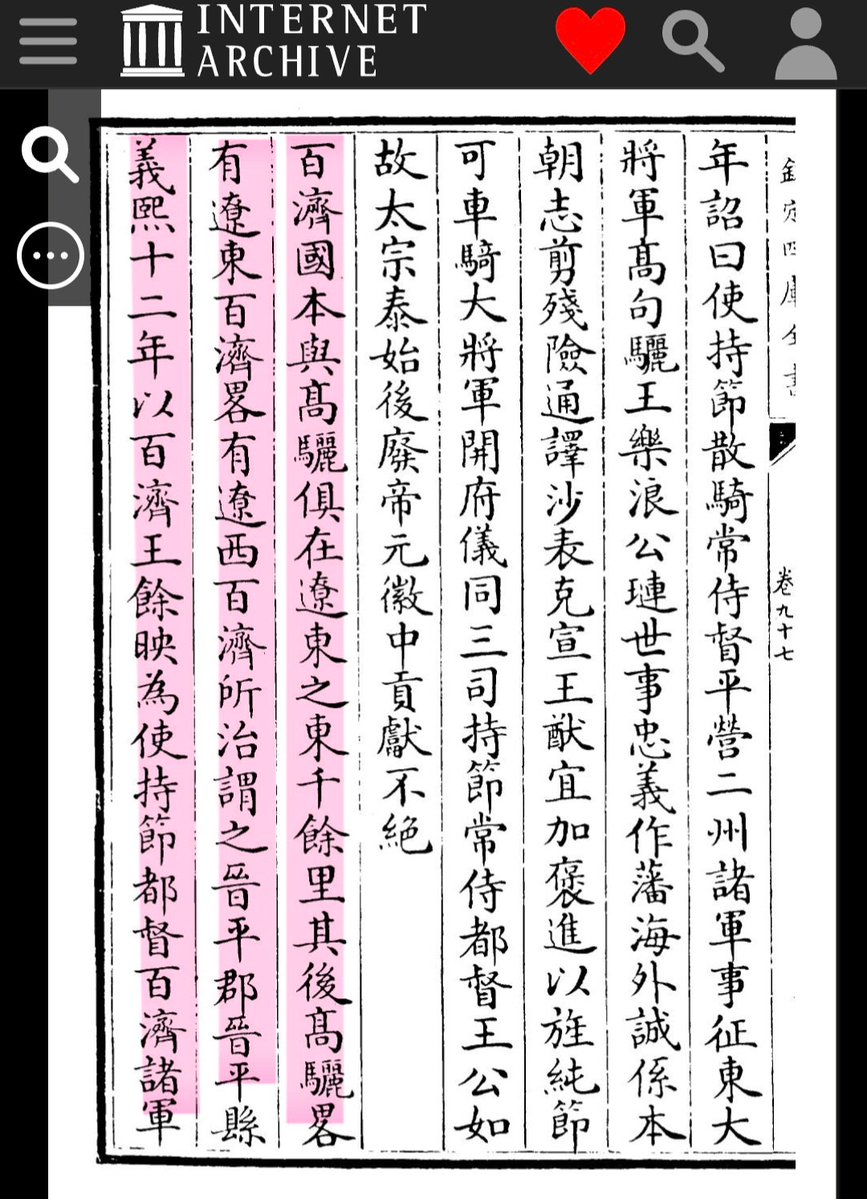 INTERNET
ARCHIVE
欽定四庫全書
卷九十七
年詔曰使持節散騎常侍督平營二州諸軍事征東大
將軍髙句驪王樂浪公璉世事忠義作藩海外誠係本
朝志剪殘險通譯沙表克宣王猷宜加褒進以旌純節
可車騎大將軍開府儀同三司持節常侍都督王公如
故太宗泰始後廢帝元徽中貢獻不絶
百濟國本與髙驪俱在遼東之東千餘里其後髙驪畧
有遼東百濟畧有遼西百濟所治謂之晉平郡晉平縣
義熙十二年以百濟王餘映為使持節都督百濟諸軍